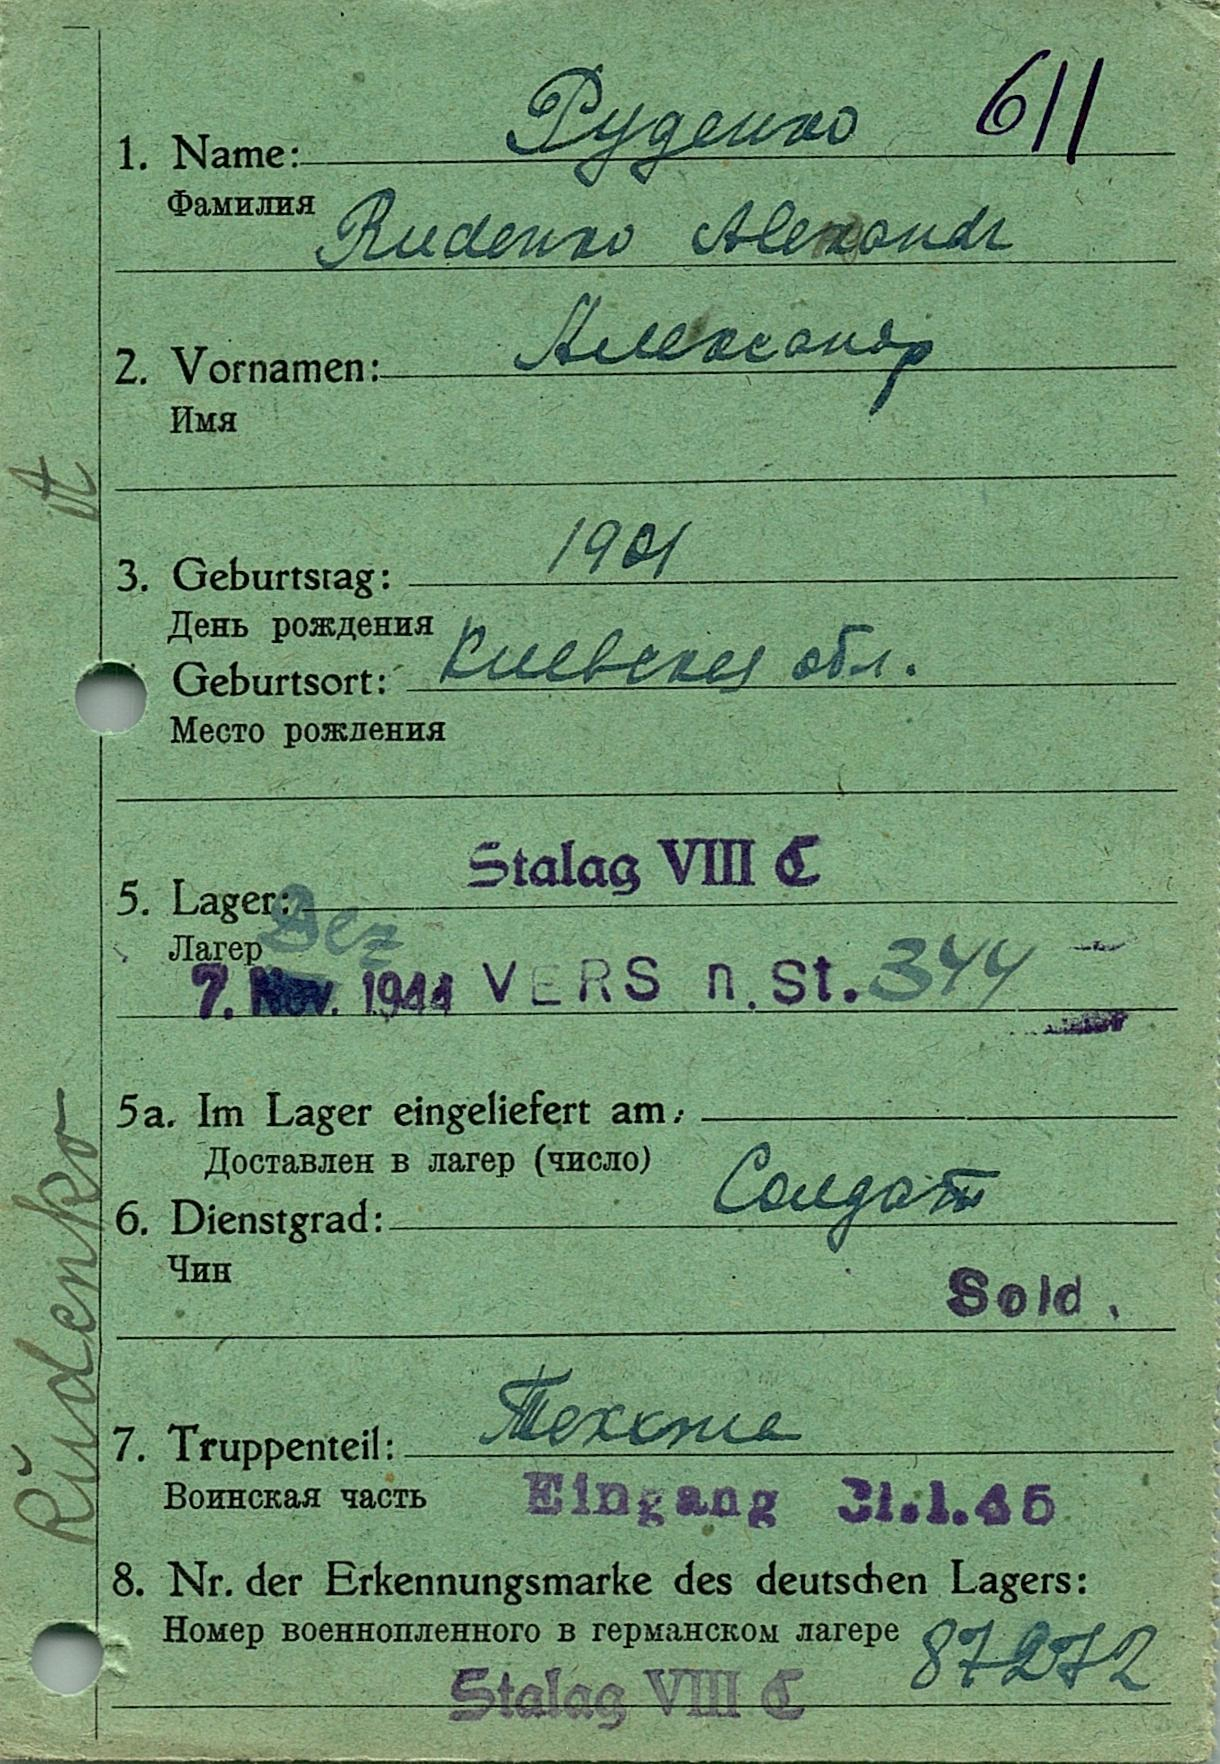 611
1. Name: Руденко
Фамилия
Rudenko Alexandr
2. Vornamen: Александр
Имя
3. Geburtstag: 1901
День рождения
Geburtsort: Киевская обл.
Место рождения
Stalag VIII C
5. Lager:
Лагер Dez
7. Nov. 1944 VERS n. St. 344
5a. Im Lager eingeliefert am:
Доставлен в лагер (число)
6. Dienstgrad: Солдат
Чин
Sold.
7. Truppenteil:
Воинская часть Eingang 31.1.45
8. Nr. der Erkennungsmarke des deutschen Lagers:
Номер военнопленного в германском лагере 87272
Stalag VIII C
Rudenko